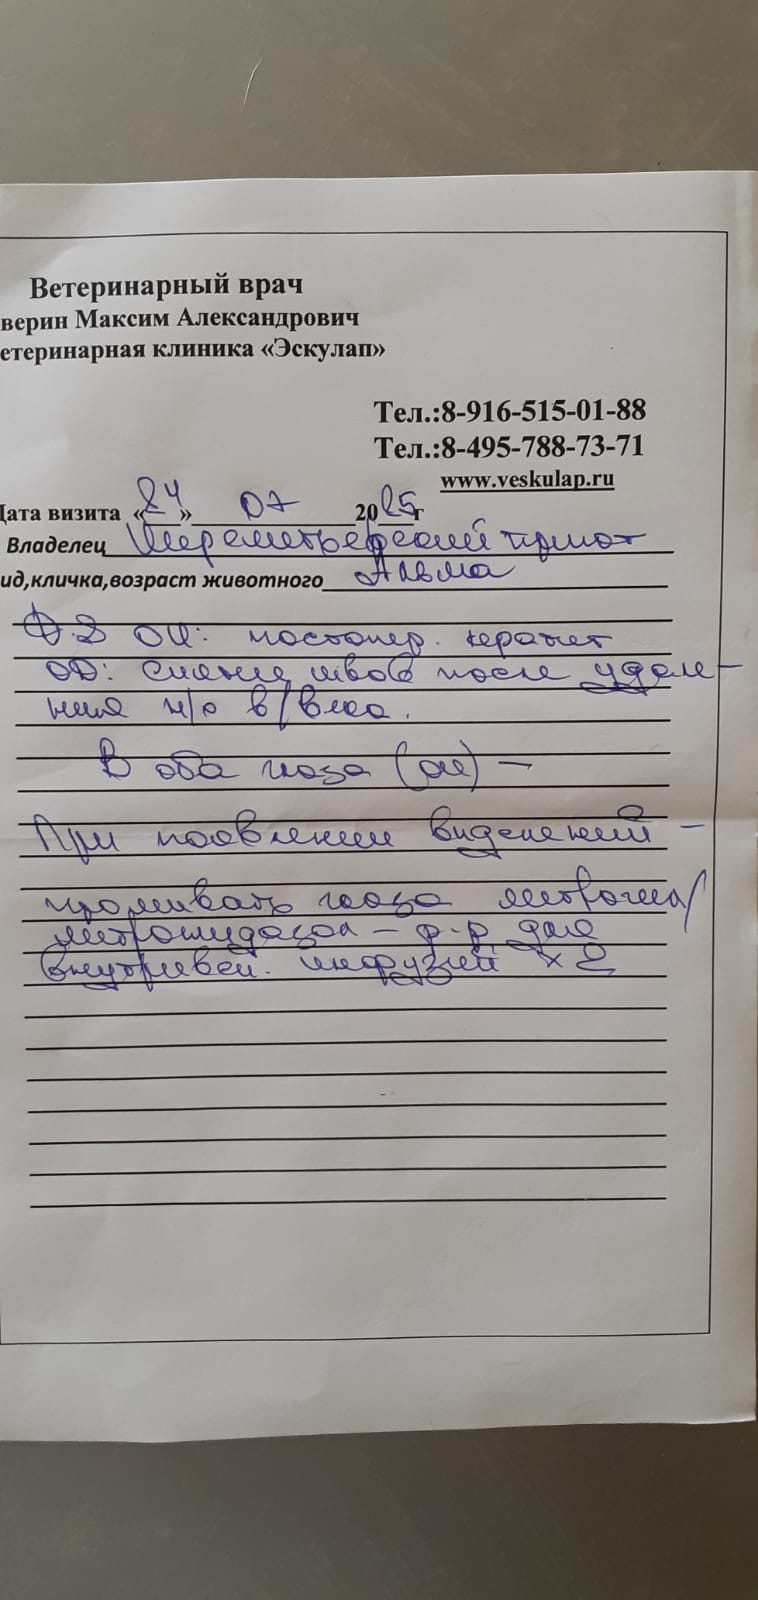 Ветеринарный врач
верин Максим Александрович
етеринарная клиника «Эскулап»
Тел.:8-916-515-01-88
Тел.:8-495-788-73-71
www.veskulap.ru
Дата визита «24» 07 2025г
Владелец Шереметьевский приют
ид,кличка,возраст животного Альма
OU: постопер. кератит
OD: Снятие швов после удале-
ния н/о в/века.
В оба глаза (ou) —
При появлении выделений —
промывать глаза метрогил/
метронидазол - р-р для
внутривен. инфузий x 2